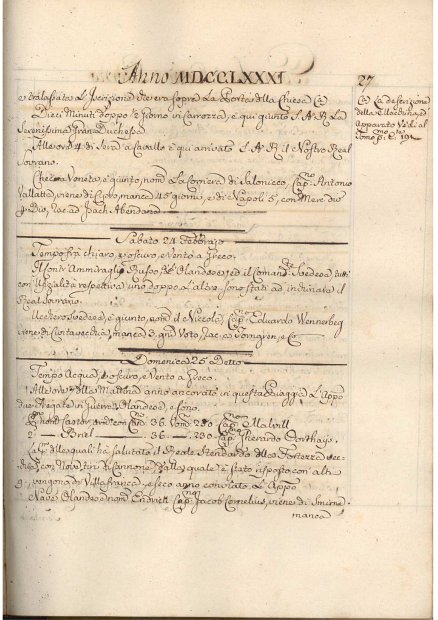 Anno MDCCLXXXI
27
e tralasciata l'Iscrizione che era sopra la Porta della Chiesa
Dieci Minuti doppo 2 giorno in Carozza, e qui giunto S. A. R. La
Serenissima Gran Duchessa
Alle ore 4 di Sera a Cavallo è qui arrivato S. A. R. il Nostro Real
Sovrano.
Checca Veneta, è giunto, nom. La Corriera di Salonicco, Cap.no Antonio
Vallatta, viene di manca 45 giorni, e di Napoli 5, con Merc. div.
Rac. ad Joach. Abendano
La descrizione
della
Apparato Vedi al
Tomo
Sabato 24 Febbrajo
Tempo frà chiaro, e oscuro, e Vento a Greco.
Il Mont. Ammiraglio Russo Olandese, ed il Comand.te Svedese tutti
con Ufizialità respettiva uno doppo l'altro sono stati ad inchinare il
Real Sovrano.
Svedese, è giunto, nom. il Niccola, Cap.no Eduardo Wennerberg
viene di Civitavecchia, manca 3. gni Voto, Rac. a Törngren, e C.
Domenica 25 Detto
Tempo Acqua, e oscuro, e Vento a Greco.
Alle ore della Mattina anno ancorato in questa Spiaggia l'Appo
due Fregate in Guerra Olandesi, e sono.
Castor, con Can. 36. Uom. 230 Cap.no Malvill
2 Briel 36 230 Cap. Gherardo Oorthuijs
delle quali ha salutato il Reale Stendardo della Fortezza
con Nove tiri di Cannone, dalla quale è stato risposto con altri
9. vengono da Villafranca, e seco anno convoiato l'Appo
Nave Olandese nom. Cap.no Jacob Cornelius, viene di Smirne
manca